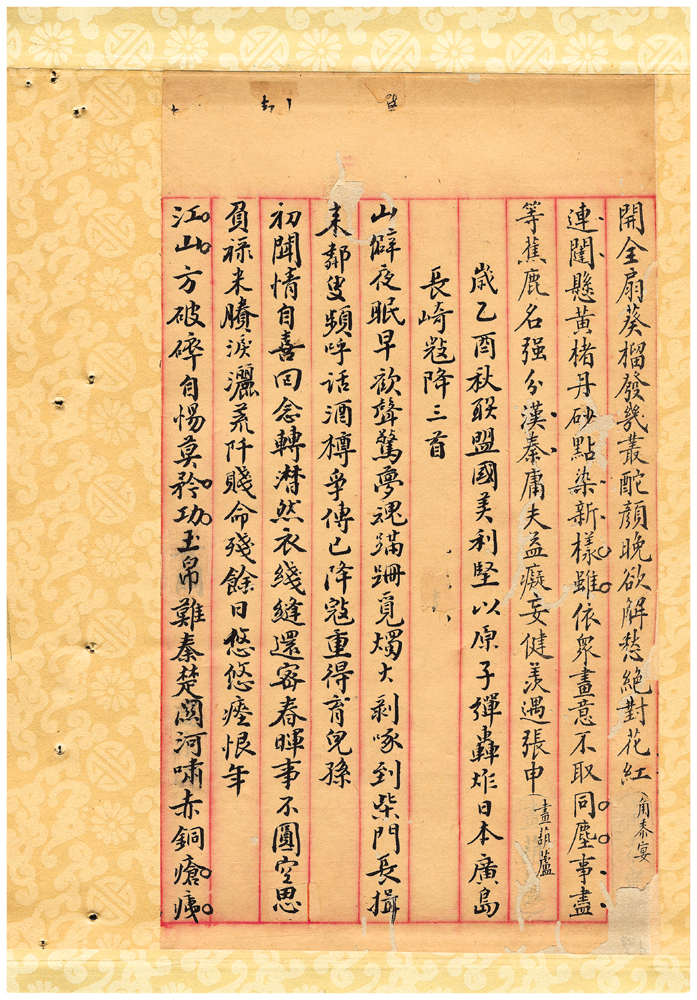 開全扇葵榴發幾叢酡顏晚欲解愁絕對花紅
角黍宴
連闥懸黃楮丹砂點染新樣雖依眾畫意不取同塵事盡
等蕉鹿名强分漢秦庸夫益癡妄健羨遇張申
畫葫蘆
歲乙酉秋联盟國美利堅以原子彈轟炸日本廣島
長崎寇降三首
山僻夜眠早歡聲驚夢魂蹣跚覓燭火剥啄到柴門長揖
来鄰叟頻呼話酒樽爭傳已降寇重得育兒孫
初聞情自喜回念轉潸然衣綫縫還密春暉事不圓空思
負祿米賸淚灑荒阡賤命殘餘日悠悠瘞恨年
江山方破碎自惕莫矜功玉帛難秦楚関河嘯赤銅瘡痍